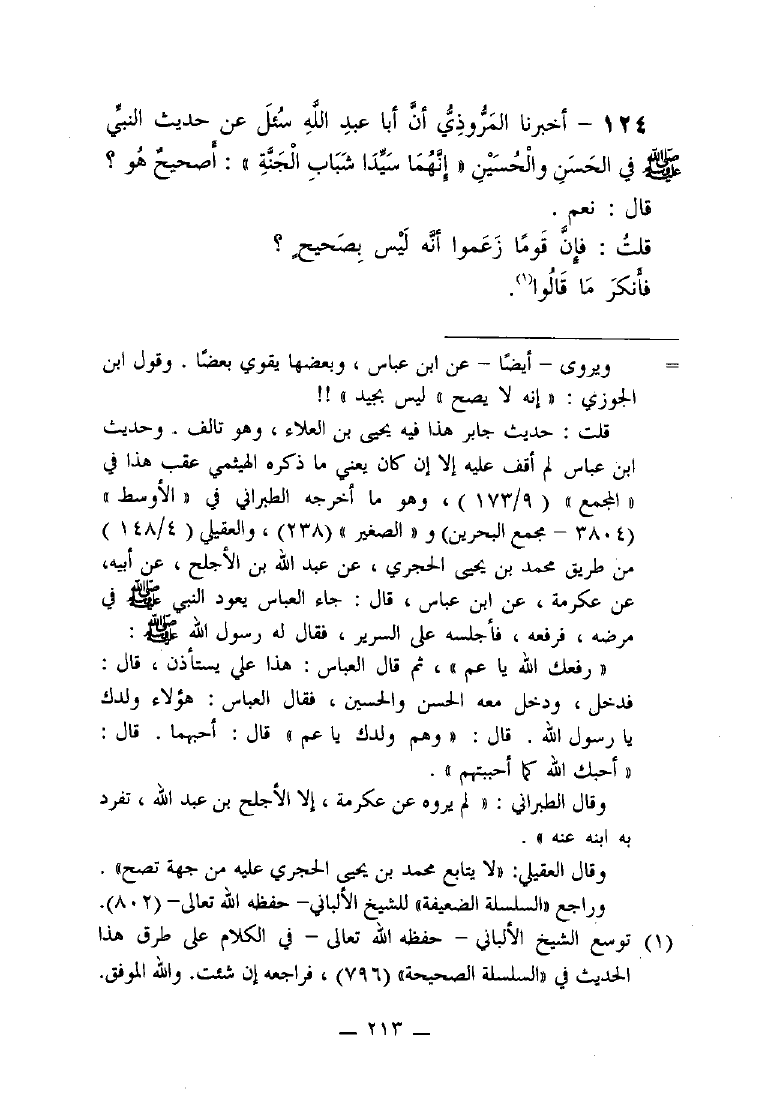 ١٢٤ – أخبرنا المَرُّوذِيُّ أنَّ أبا عبدِ اللَّهِ سُئلَ عن حديث النبيِّ
ﷺ في الحَسَنِ والْحُسَيْنِ « إِنَّهُمَا سَيِّدَا شَبَابِ الْجَنَّةِ » : أَصحيحٌ هُو ؟
قال : نعم .
قلتُ : فإِنَّ قَومًا زَعَموا أنَّه لَيْس بِصَحيحٍ ؟
فأَنكرَ مَا قَالُوا(١).
= ويروى – أيضًا – عن ابن عباس ، وبعضها يقوي بعضًا . وقول ابن
الجوزي : « إنه لا يصح » ليس بجيد » !!
قلت : حديث جابر هذا فيه يحيى بن العلاء ، وهو تالف . وحديث
ابن عباس لم أقف عليه إلا إن كان يعني ما ذكره الهيثمي عقب هذا في
« المجمع » ( ١٧٣/٩ ) ، وهو ما أخرجه الطبراني في « الأوسط »
(٣٨٠٤ – مجمع البحرين) و « الصغير » (٢٣٨) ، والعقيلي ( ١٤٨/٤ )
من طريق محمد بن يحيى الحجري ، عن عبد الله بن الأجلح ، عن أبيه،
عن عكرمة ، عن ابن عباس ، قال : جاء العباس يعود النبي ﷺ في
مرضه ، فرفعه ، فأجلسه على السرير ، فقال له رسول الله ﷺ :
« رفعك الله يا عم » ، ثم قال العباس : هذا علي يستأذن ، قال :
فدخل ، ودخل معه الحسن والحسين ، فقال العباس : هؤلاء ولدك
يا رسول الله . قال : « وهم ولدك يا عم » قال : أحبهما . قال :
« أحبك الله كما أحببتهم » .
وقال الطبراني : « لم يروه عن عكرمة ، إلا الأجلح بن عبد الله ، تفرد
به ابنه عنه » .
وقال العقيلي: «لا يتابع محمد بن يحيى الحجري عليه من جهة تصح» .
وراجع «السلسلة الضعيفة» للشيخ الألباني– حفظه الله تعالى– (٨٠٢).
(١) توسع الشيخ الألباني – حفظه الله تعالى – في الكلام على طرق هذا
الحديث في «السلسلة الصحيحة» (٧٩٦) ، فراجعه إن شئت. والله الموفق.
– ٢١٣ –